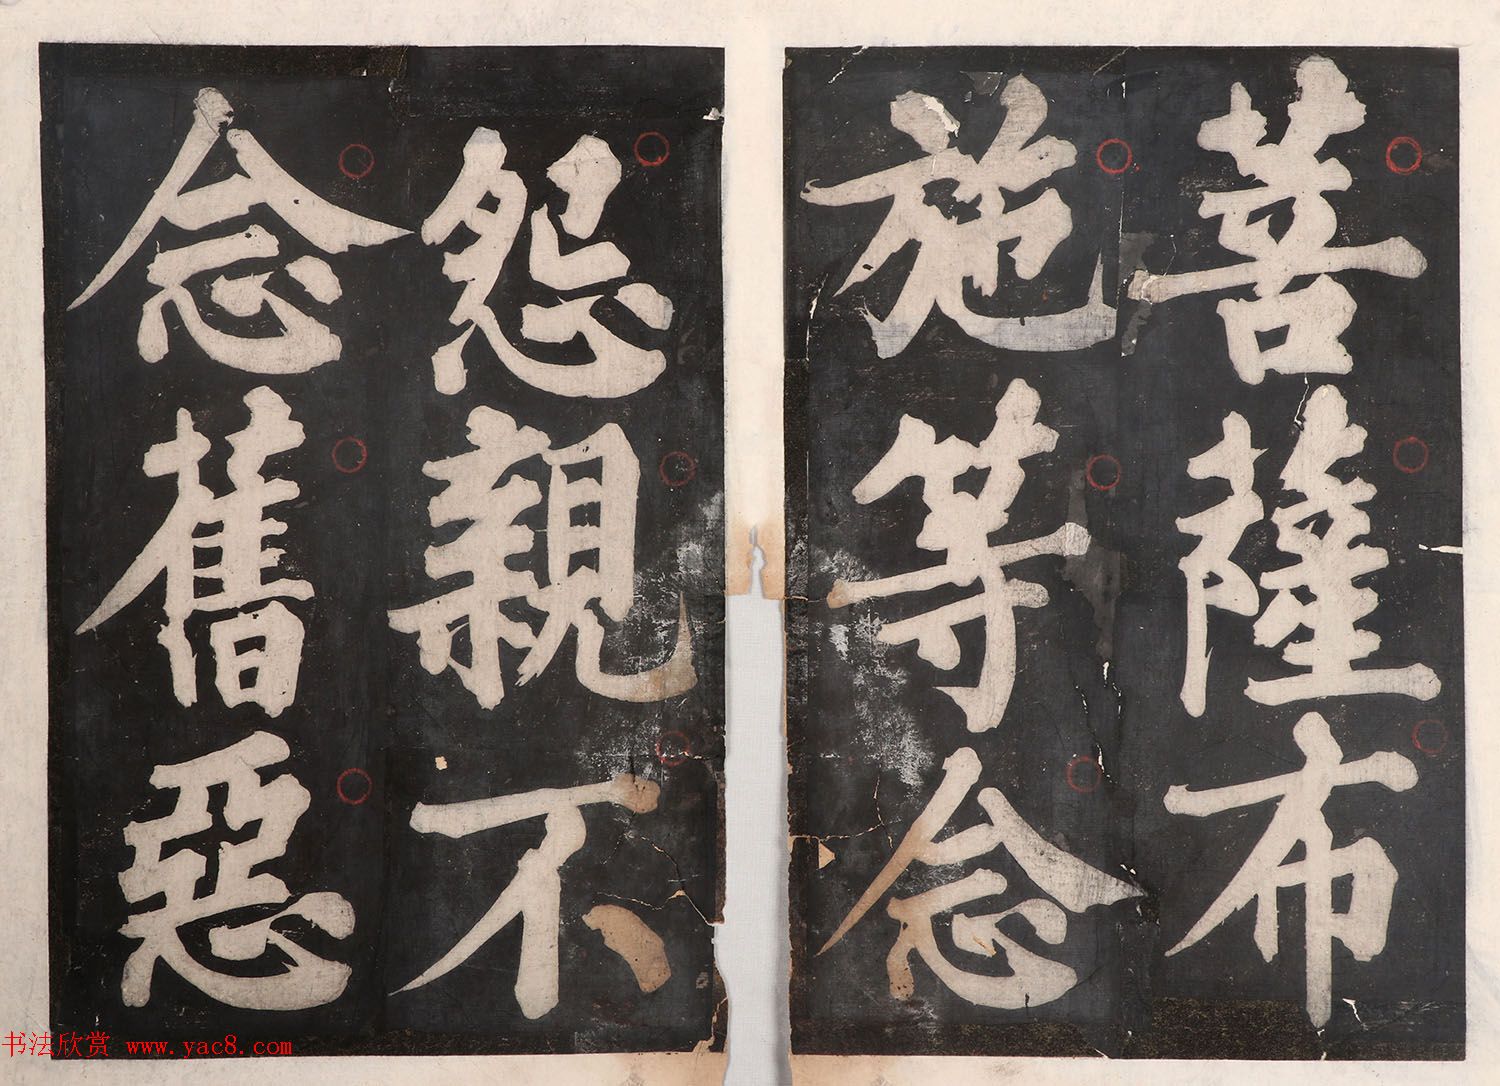 菩薩布
施等念
怨親不
念舊惡
书法欣赏 www.yac8.com